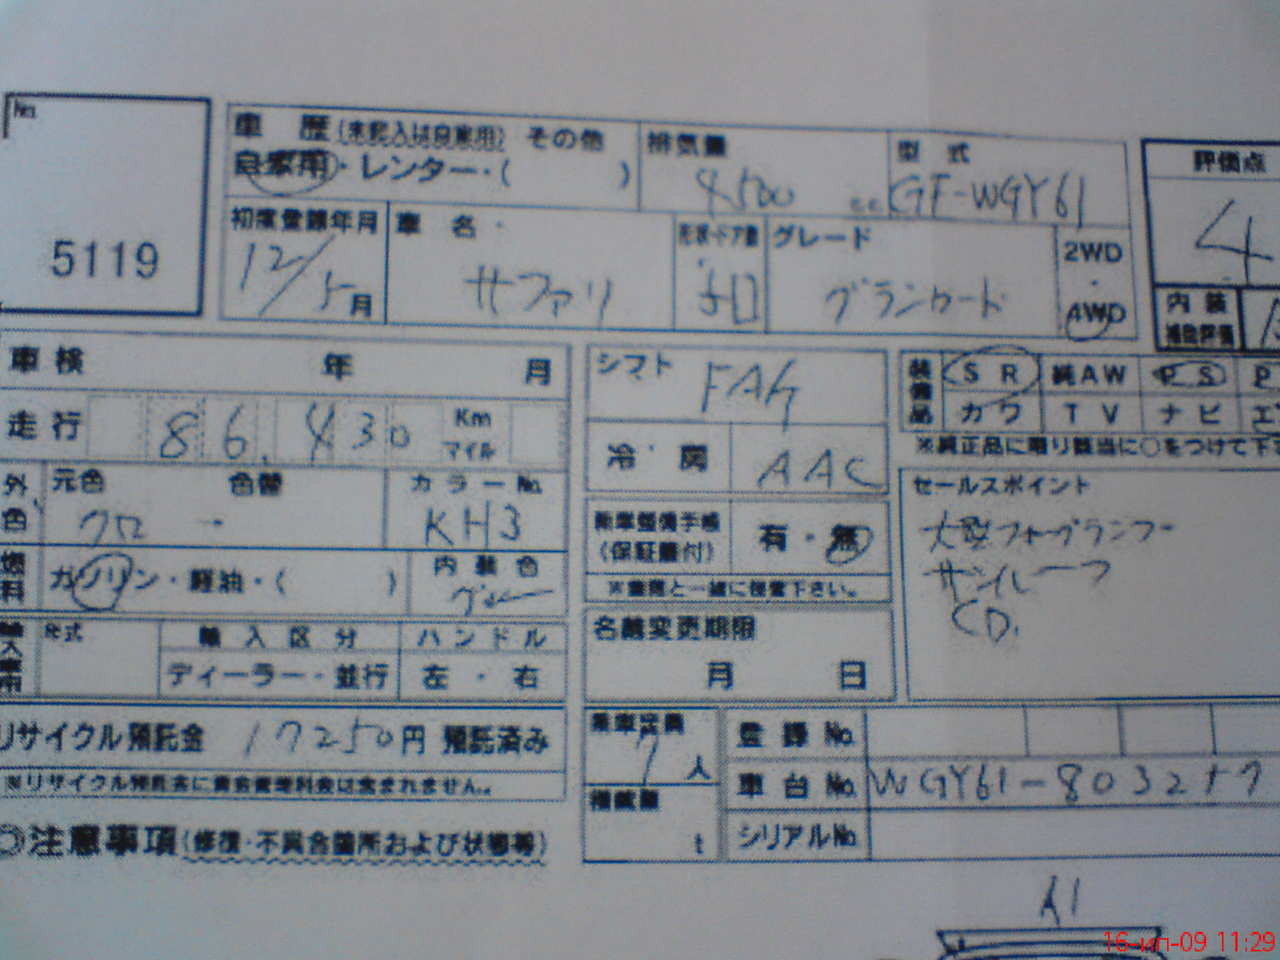 No.
5119
車 歴 (未記入は自家用) その他
自家用・レンター・( )
排気量
4500 cc
型 式
GF-WGY61
評価点
4
初度登録年月
12/5月
車 名
サファリ
形状・ドア数
5口
グレード
グランロード
2WD
・
4WD
内 装
補助評価
車 検 年 月
走行 86,430 Km
マイル
外
色
元色 色替
クロ →
カラーNo.
KH3
燃
料
ガソリン・軽油・( )
内 装 色
グレー
形式
輸 入 区 分
ディーラー・並行
ハ ン ド ル
左 ・ 右
リサイクル預託金 17250円 預託済み
※リサイクル預託金に資金管理料金は含まれません。
◎注意事項(修復・不具合箇所および状態等)
シフト
FA4
冷・房
AAC
新車整備手帳
(保証書付)
有・無
※書類と一緒に保管下さい。
名義変更期限
月 日
乗車定員
7人
積載量
t
装
備
品
S R 純AW P S P
カワ T V ナビ エ
※純正品に限り該当に○をつけて下さ
セールスポイント
大型フォグランプ
サンルーフ
CD.
登 録 No.
車 台 No. WGY61-803257
シリアルNo.
A1
16-ип-09 11:29